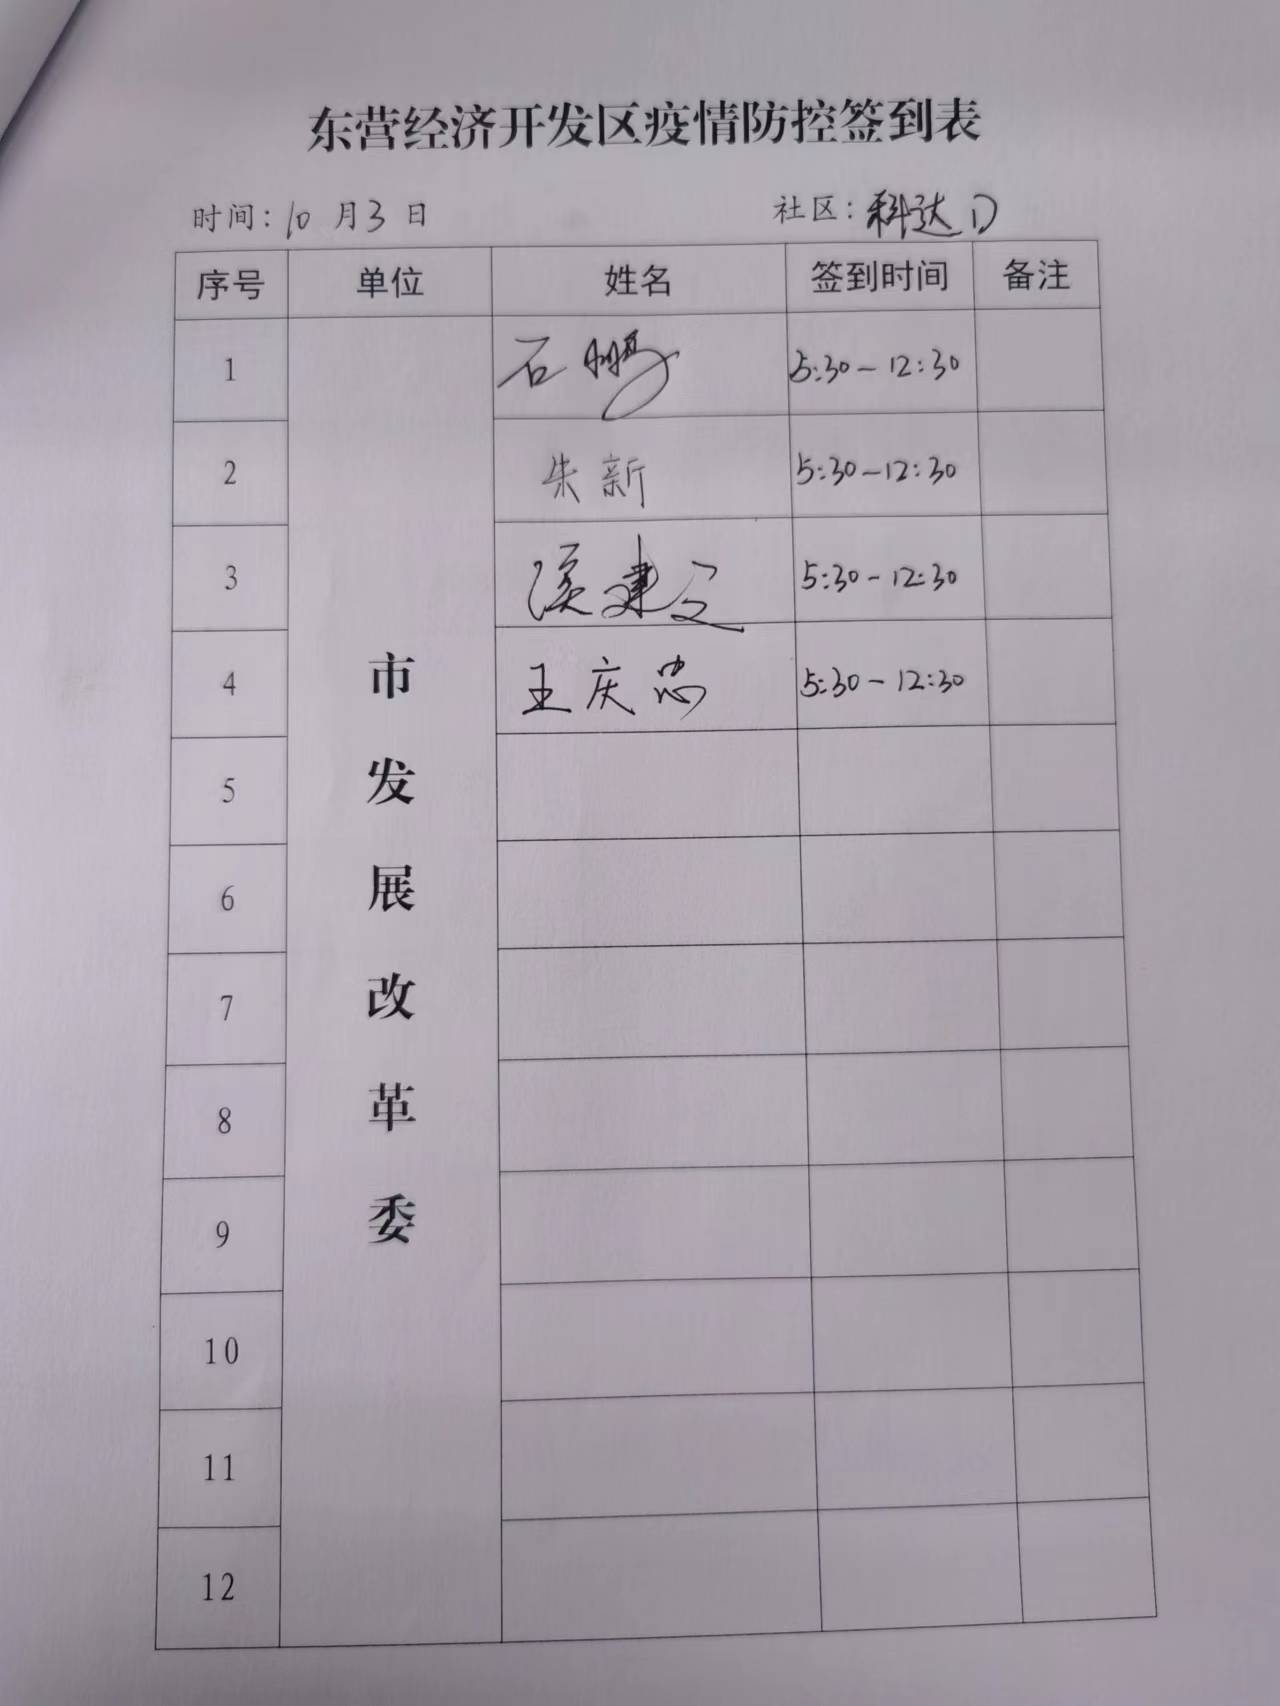 东营经济开发区疫情防控签到表
时间：10月3日 社区：科达D
序号 单位 姓名 签到时间 备注
市发展改革委
1 石鹏 5:30-12:30
2 朱新 5:30-12:30
3 建 5:30-12:30
4 王庆忠 5:30-12:30
5
6
7
8
9
10
11
12